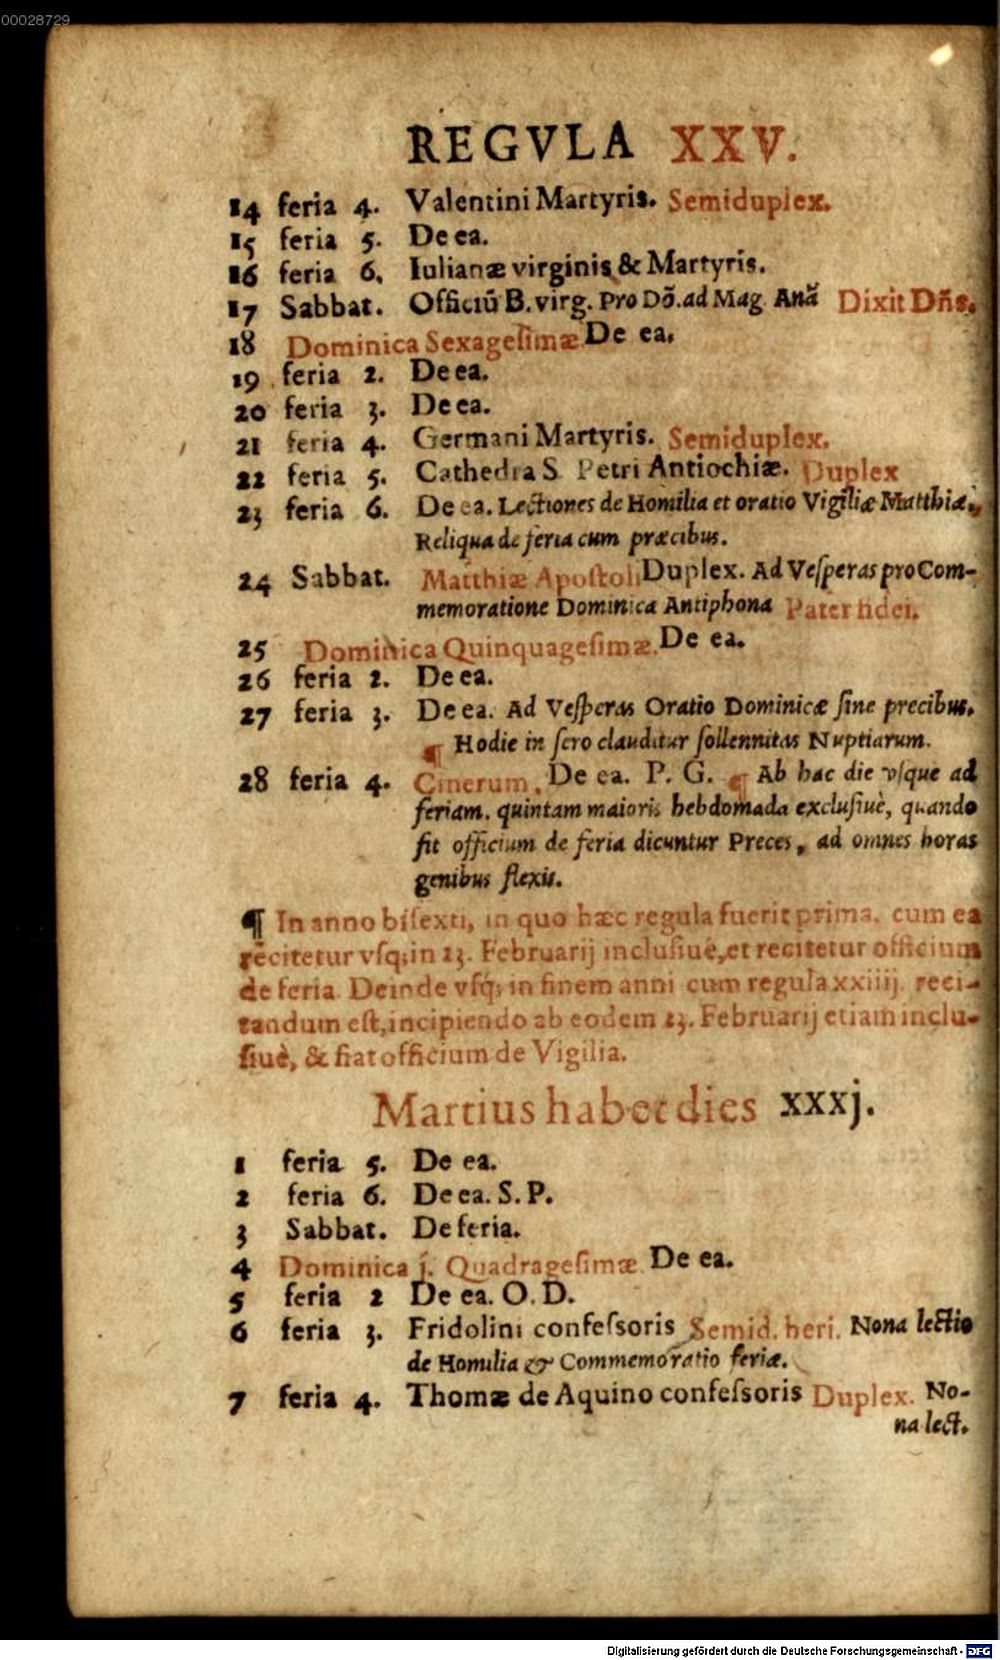 00028729
REGVLA XXV.
14 feria 4. Valentini Martyris. Semiduplex.
15 feria 5. De ea.
16 feria 6. Iulianæ virginis & Martyris.
17 Sabbat. Officiū B. virg. Pro Dō. ad Mag. Anã Dixit Dñs.
18 Dominica Sexagesimæ. De ea.
19 feria 2. De ea.
20 feria 3. De ea.
21 feria 4. Germani Martyris. Semiduplex.
22 feria 5. Cathedra S. Petri Antiochiæ. Duplex
23 feria 6. De ea. Lectiones de Homilia et oratio Vigiliæ Matthiæ,
Reliqua de feria cum præcibus.
24 Sabbat. Matthiæ Apostoli Duplex. Ad Veſperas pro Com-
memoratione Dominica Antiphona Pater fidei.
25 Dominica Quinquagesimæ. De ea.
26 feria 2. De ea.
27 feria 3. De ea. Ad Veſperas Oratio Dominicæ ſine precibus.
¶ Hodie in ſero clauditur ſollennitas Nuptiarum.
28 feria 4. Cinerum. De ea. P. G. ¶ Ab hac die vſque ad
feriam. quintam maioris hebdomada excluſiuè, quando
fit officium de feria dicuntur Preces, ad omnes horas
genibus flexis.
¶ In anno biſexti, in quo hæc regula fuerit prima. cum ea
recitetur vſq; in 23. Februarij incluſiuè, et recitetur officium
de feria. Deinde vſq; in finem anni cum regula xxiiij. reci-
tandum eſt, incipiendo ab eodem 23. Februarij etiam inclu-
ſiuè, & fiat officium de Vigilia.
Martius habet dies xxxj.
1 feria 5. De ea.
2 feria 6. De ea. S. P.
3 Sabbat. De feria.
4 Dominica j. Quadrageſimæ. De ea.
5 feria 2 De ea. O. D.
6 feria 3. Fridolini confeſſoris Semid. heri. Nona lectio
de Homilia & Commemoratio feriæ.
7 feria 4. Thomæ de Aquino confeſſoris Duplex. No-
na lect.
Digitalisierung gefördert durch die Deutsche Forschungsgemeinschaft - DFG